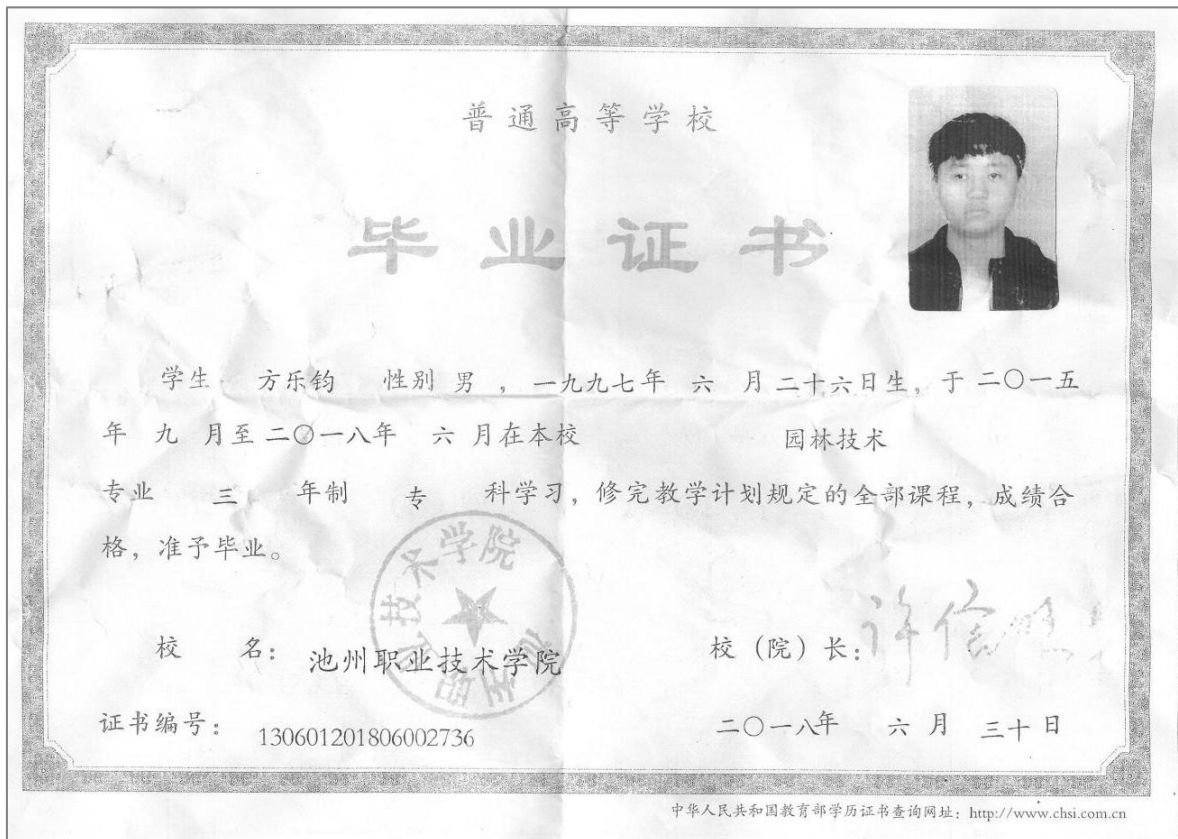 普通高等学校
毕业证书
学生 方乐钧 性别 男 ，一九九七年 六 月 二十六日生，于 二〇一五
年 九 月至 二〇一八年 六 月在本校 园林技术
专业 三 年制 专 科学习，修完教学计划规定的全部课程，成绩合
格，准予毕业。
校 名： 池州职业技术学院
校（院）长：
证书编号： 130601201806002736
二〇一八年 六 月 三十 日
中华人民共和国教育部学历证书查询网址：http://www.chsi.com.cn